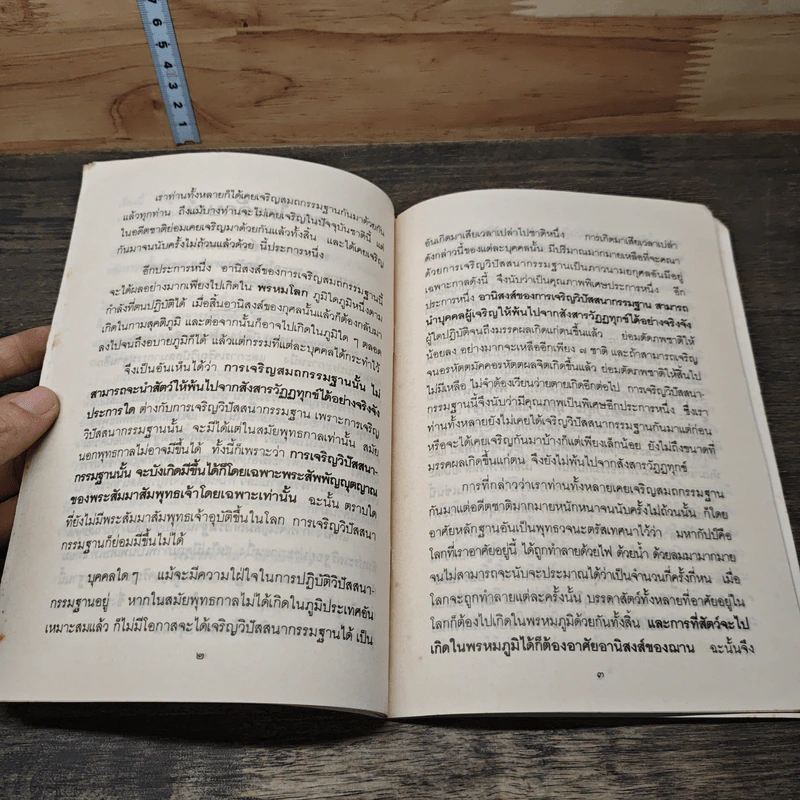 เราท่านทั้งหลายก็ได้เคยเจริญสมถกรรมฐานกันมาด้วยกัน
แล้วทุกท่าน ถึงแม้บางท่านจะไม่เคยเจริญในปัจจุบันชาตินี้ แต่
ในอดีตชาติย่อมเคยเจริญมาด้วยกันแล้วทั้งสิ้น และได้เคยเจริญ
กันมาจนนับครั้งไม่ถ้วนแล้วด้วย นี้ประการหนึ่ง
อีกประการหนึ่ง อานิสงส์ของการเจริญสมถกรรมฐานนี้
จะได้ผลอย่างมากก็เพียงไปเกิดใน พรหมโลก ภูมิใดภูมิหนึ่งตาม
กำลังที่ตนปฏิบัติได้ เมื่อสิ้นอานิสงส์ของกุศลนั้นแล้วก็ต้องกลับมา
เกิดในกามสุคติภูมิ และต่อจากนั้นก็อาจไปเกิดในภูมิใด ๆ ตลอด
ลงไปจนถึงอบายภูมิก็ได้ แล้วแต่กรรมที่แต่ละบุคคลได้กระทำไว้
จึงเป็นอันเห็นได้ว่า การเจริญสมถกรรมฐานนั้น ไม่
สามารถจะนำสัตว์ให้พ้นไปจากสังสารวัฏฏทุกข์ได้อย่างจริงจัง
ประการใด ต่างกับการเจริญวิปัสสนากรรมฐาน เพราะการเจริญ
วิปัสสนากรรมฐานนั้น จะมีได้แต่ในสมัยพุทธกาลเท่านั้น สมัย
นอกพุทธกาลไม่อาจมีขึ้นได้ ทั้งนี้ก็เพราะว่า การเจริญวิปัสสนา-
กรรมฐานนั้น จะบังเกิดมีขึ้นได้ก็โดยเฉพาะพระสัพพัญญุตญาณ
ของพระสัมมาสัมพุทธเจ้าโดยเฉพาะเท่านั้น ฉะนั้น ตราบใด
ที่ยังไม่มีพระสัมมาสัมพุทธเจ้าอุบัติขึ้นในโลก การเจริญวิปัสสนา
กรรมฐานก็ย่อมมีขึ้นไม่ได้
บุคคลใด ๆ แม้จะมีความใฝ่ใจในการปฏิบัติวิปัสสนา-
กรรมฐานอยู่ หากในสมัยพุทธกาลไม่ได้เกิดในภูมิประเทศอัน
เหมาะสมแล้ว ก็ไม่มีโอกาสจะได้เจริญวิปัสสนากรรมฐานได้ เป็น
๒
อันเกิดมาเสียเวลาเปล่าไปชาติหนึ่ง การเกิดมาเสียเวลาเปล่า
ดังกล่าวนี้ของแต่ละบุคคลนั้น มีปริมาณมากมายเหลือที่จะคณา
ด้วยการเจริญวิปัสสนากรรมฐานเป็นภาวนามยกุศลอันมีอยู่
เฉพาะกาลดังนี้ จึงนับว่าเป็นคุณภาพพิเศษประการหนึ่ง อีก
ประการหนึ่ง อานิสงส์ของการเจริญวิปัสสนากรรมฐาน สามารถ
นำบุคคลผู้เจริญให้พ้นไปจากสังสารวัฏฏทุกข์ได้อย่างจริงจัง
ผู้ใดปฏิบัติจนถึงมรรคผลเกิดแก่ตนขึ้นแล้ว ย่อมตัดภพชาติให้
น้อยลง อย่างมากจะเหลืออีกเพียง ๗ ชาติ และถ้าสามารถเจริญ
จนอรหัตตมัคคอรหัตตผลจิตเกิดขึ้นแล้ว ย่อมตัดภพชาติให้สิ้นไป
ไม่มีเหลือ ไม่จำต้องเวียนว่ายตายเกิดอีกต่อไป การเจริญวิปัสสนา-
กรรมฐานนี้จึงนับว่ามีคุณภาพเป็นพิเศษอีกประการหนึ่ง ซึ่งเรา
ท่านทั้งหลายยังไม่เคยได้เจริญวิปัสสนากรรมฐานกันมาแต่ก่อน
หรือจะได้เคยเจริญกันมาบ้างก็แต่เพียงเล็กน้อย ยังไม่ถึงขนาดที่
มรรคผลเกิดขึ้นแก่ตน จึงยังไม่พ้นไปจากสังสารวัฏฏทุกข์
การที่กล่าวว่าเราท่านทั้งหลายเคยเจริญสมถกรรมฐาน
กันมาแต่อดีตชาติมากมายหนักหนาจนนับครั้งไม่ถ้วนนั้น ก็โดย
อาศัยหลักฐานอันเป็นพุทธวจนะตรัสเทศนาไว้ว่า มหากัปป์คือ
โลกที่เราอาศัยอยู่นี้ ได้ถูกทำลายด้วยไฟ ด้วยน้ำ ด้วยลมมามากมาย
จนไม่สามารถจะนับจะประมาณได้ว่าเป็นจำนวนกี่ครั้งกี่หน เมื่อ
โลกจะถูกทำลายแต่ละครั้งนั้น บรรดาสัตว์ทั้งหลายที่อาศัยอยู่ใน
โลกก็ต้องไปเกิดในพรหมภูมิด้วยกันทั้งสิ้น และการที่สัตว์จะไป
เกิดในพรหมภูมิได้ก็ต้องอาศัยอานิสงส์ของฌาน ฉะนั้นจึง
๓
7 6 5 4 3 2 1